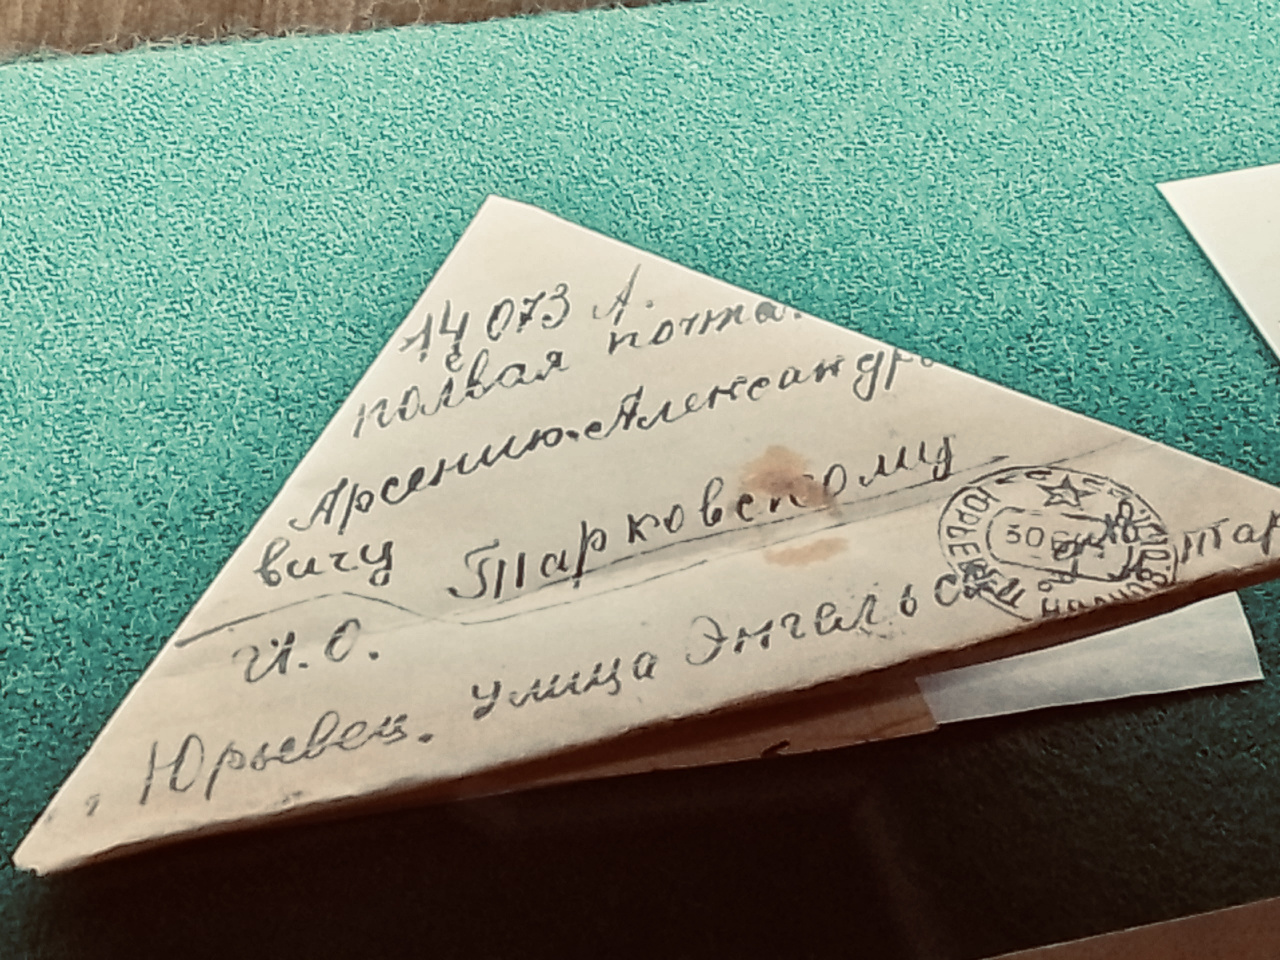 14073 А.
полвая почта.
Арсению Александро
вичу Тарковскому
И.О.
Юрьевец. улица Энгельса
30